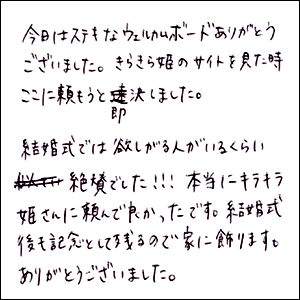 今日はステキなウェルカムボードありがとう
ございました。きらきら姫のサイトを見た時
ここに頼もうと即決しました。
結婚式では欲しがる人がいるくらい
絶賛でした!!! 本当にキラキラ
姫さんに頼んで良かったです。結婚式
後も記念として残るので家に飾ります。
ありがとうございました。